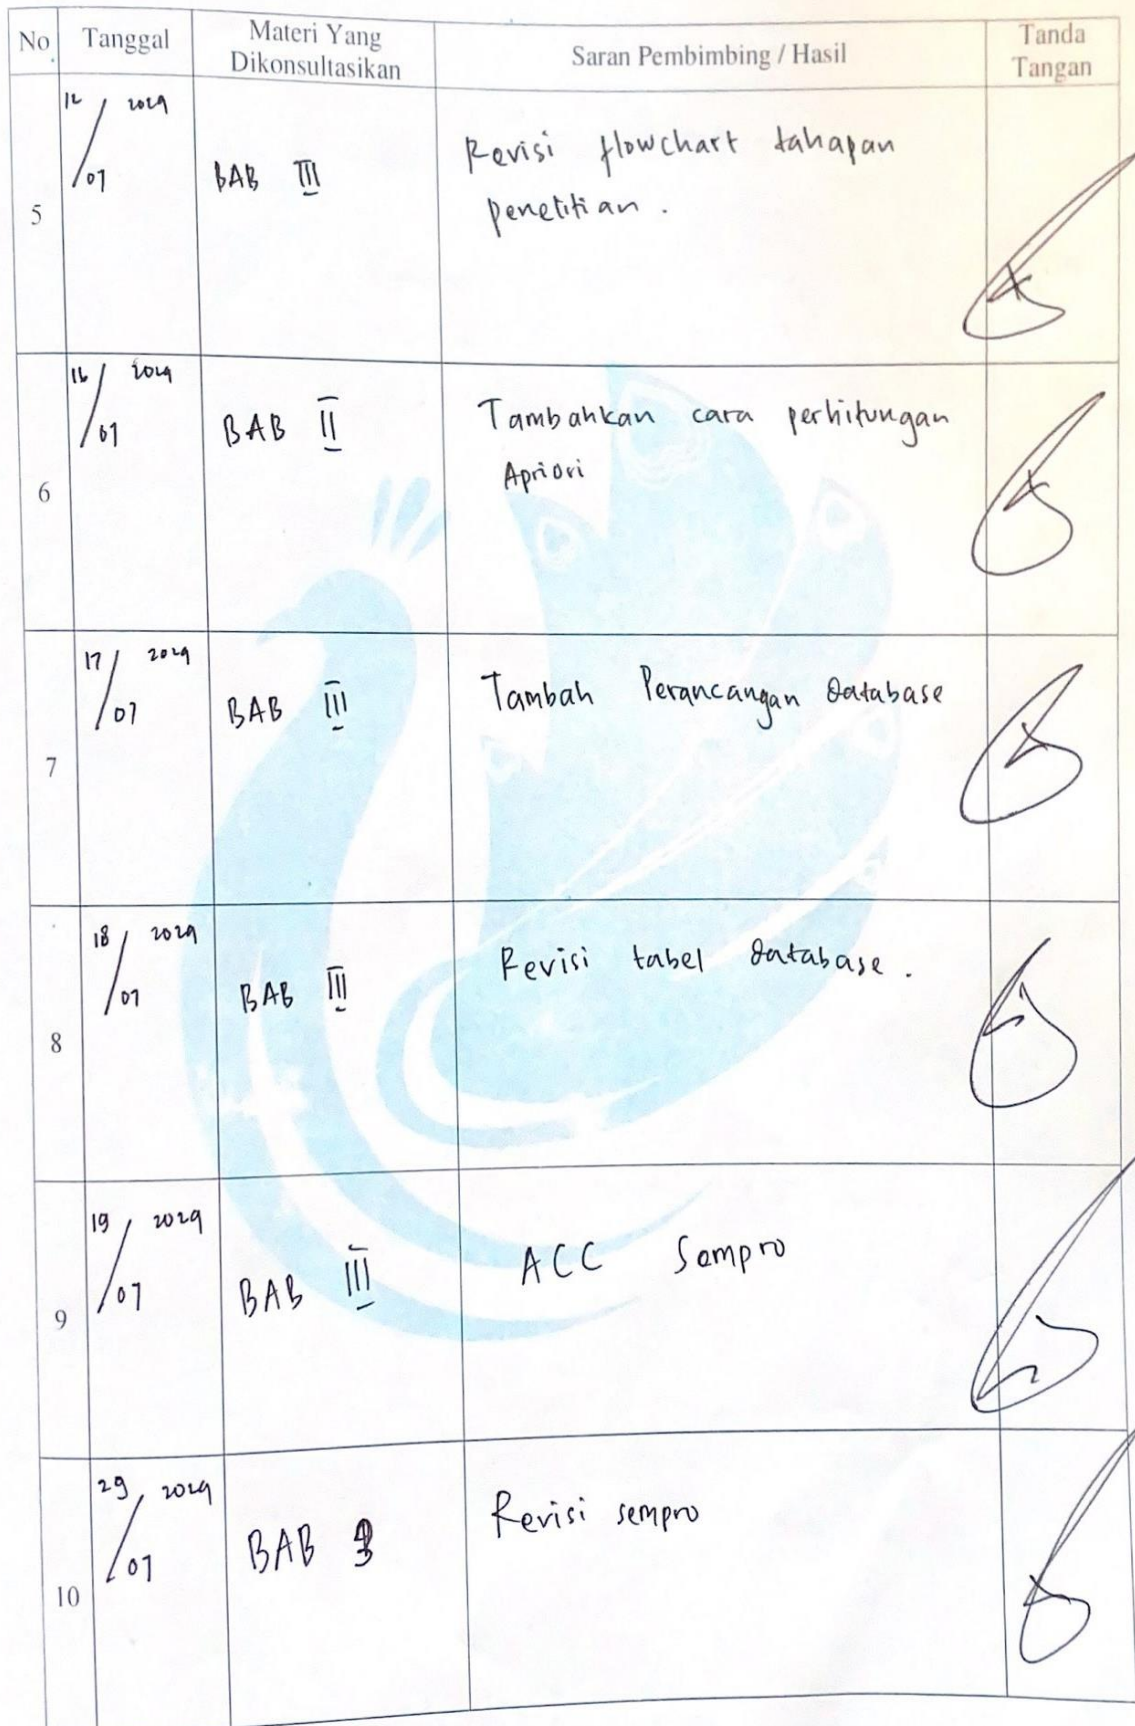 No Tanggal Materi Yang Dikonsultasikan Saran Pembimbing / Hasil Tanda Tangan
5 12/07 2024 BAB III Revisi flowchart tahapan
penelitian.
6 16/07 2024 BAB II Tambahkan cara perhitungan
Apriori
7 17/07 2024 BAB III Tambah Perancangan database
8 18/07 2024 BAB III Revisi tabel database.
9 19/07 2024 BAB III ACC Sempro
10 29/07 2024 BAB Revisi sempro